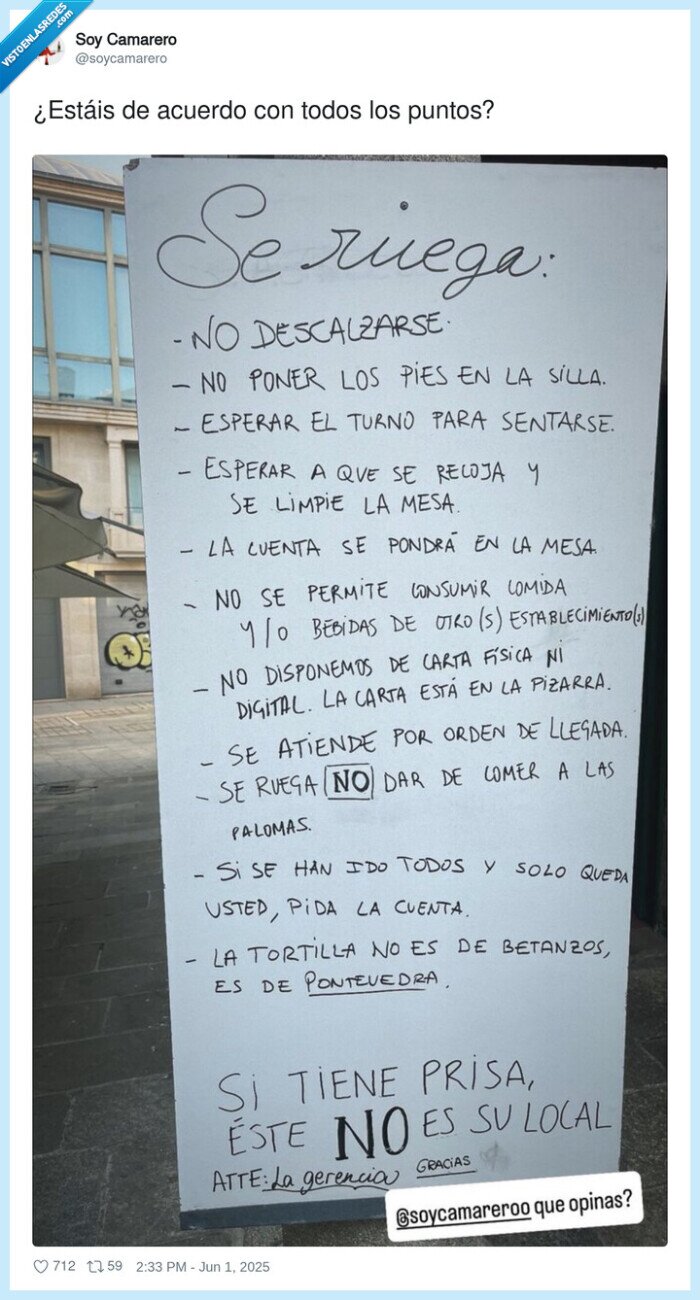 VISTOENLASREDES
.com
Soy Camarero
@soycamarero
¿Estáis de acuerdo con todos los puntos?
Se ruega:
- NO DESCALZARSE.
- NO PONER LOS PIES EN LA SILLA.
- ESPERAR EL TURNO PARA SENTARSE.
- ESPERAR A QUE SE RECOJA Y
SE LIMPIE LA MESA.
- LA CUENTA SE PONDRÁ EN LA MESA.
- NO SE PERMITE CONSUMIR COMIDA
Y/O BEBIDAS DE OTRO(S) ESTABLECIMIENTO(S)
- NO DISPONEMOS DE CARTA FÍSICA NI
DIGITAL. LA CARTA ESTÁ EN LA PIZARRA.
- SE ATIENDE POR ORDEN DE LLEGADA.
- SE RUEGA NO DAR DE COMER A LAS
PALOMAS.
- SI SE HAN IDO TODOS Y SOLO QUEDA
USTED, PIDA LA CUENTA.
- LA TORTILLA NO ES DE BETANZOS,
ES DE PONTEVEDRA.
SI TIENE PRISA,
ÉSTE NO ES SU LOCAL
ATTE: La gerencia GRACIAS
@soycamareroo que opinas?
712 59 2:33 PM - Jun 1, 2025